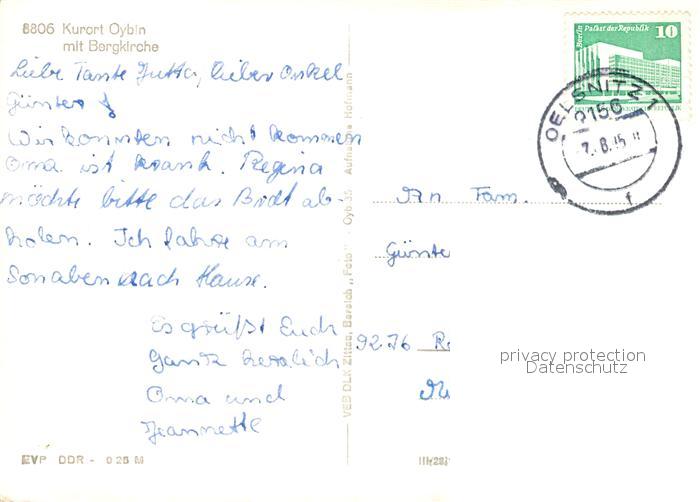 8806 Kurort Oybin
mit Bergkirche
Liebe Tante Jutta, lieber Onkel
Günter!
Wir konnten nicht kommen
Oma ist krank. Regina
möchte bitte das Bidt ab-
holen. Ich fahre am
Sonabend nach Hause.
Es grüßt Euch
Ganz herzlich
Oma und
Jeannette
EVP DDR - 0 25 M
VEB DLK Zittau, Bereich „Foto" Oybin Aufn. Hofmann
Berlin Palast der Republik 10
OELSNITZ 1
9156
f
An Fam.
Günte
9276
privacy protection
Datenschutz